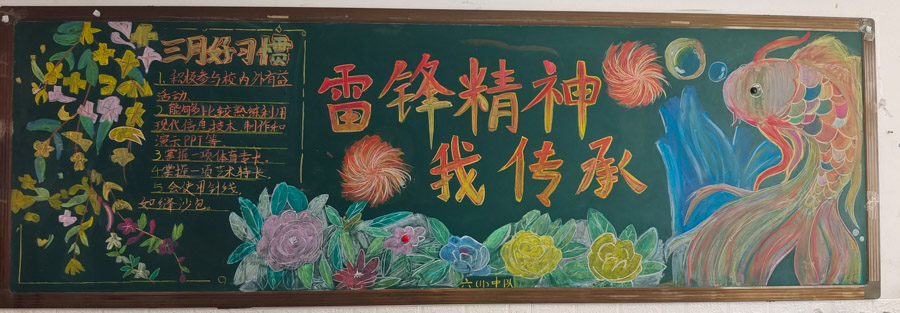 三月好习惯
1.积极参与校内外有益
活动.
2.能够比较熟练利用
现代信息技术 制作和
演示PPT等
3.掌握一项体育专长.
4.掌握一项艺术特长.
5.会使用针线.
如缝沙包.
雷锋精神
我传承
六(1)中队